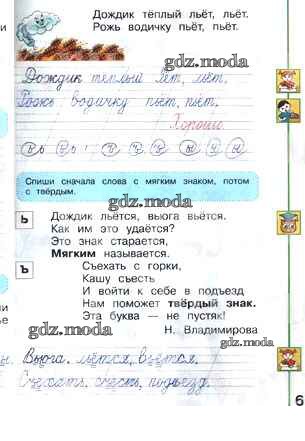 Дождик тёплый льёт, льёт.
Рожь водичку пьёт, пьёт.
gdz.moda
Дождик тёплый льёт, льёт.
Рожь водичку пьёт, пьёт.
gdz.moda
Хорошо
Спиши сначала слова с мягким знаком, потом
с твёрдым.
gdz.moda
ь Дождик льётся, вьюга вьётся.
Как им это удаётся?
Это знак старается,
Мягким называется.
ъ Съехать с горки,
Кашу съесть
И войти к себе в подъезд
Нам поможет твёрдый знак.
Эта буква – не пустяк!
Н. Владимирова
gdz.moda
gdz.moda
Вьюга, льётся, вьётся.
Съехать, съесть, подъезд.
gdz.moda
6